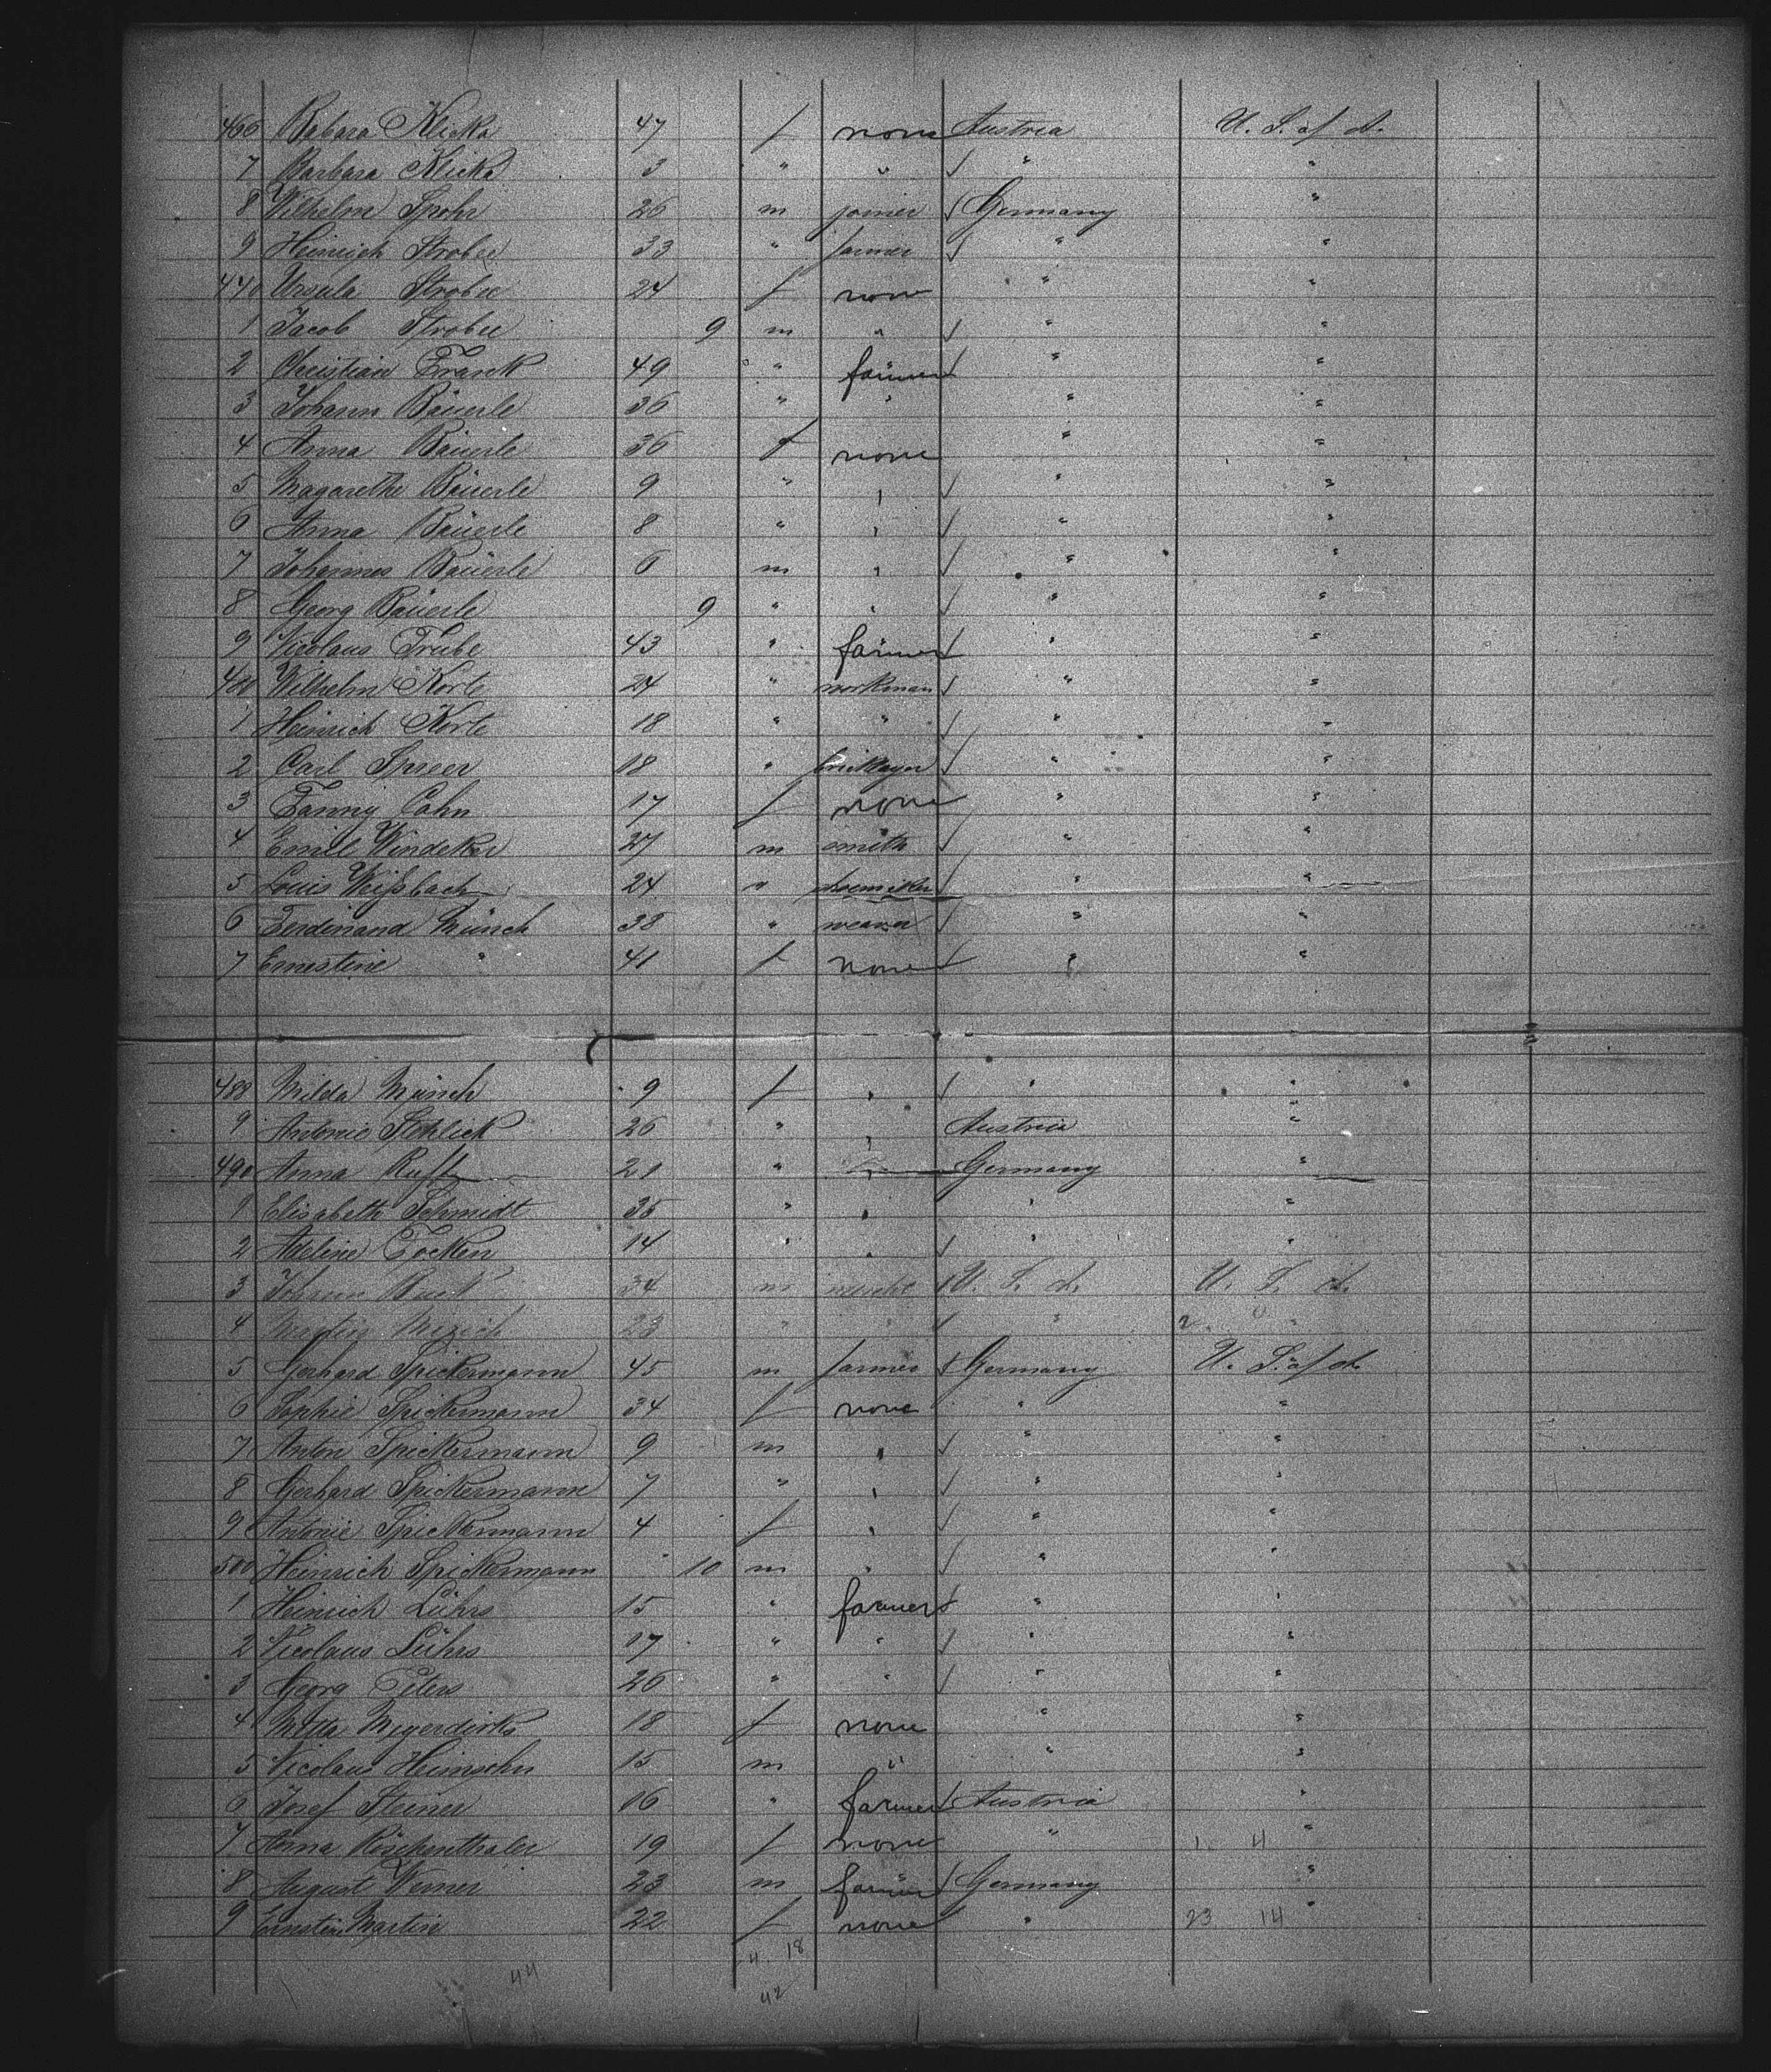 466 Babara Klicka 47 f none Austria U. S. of A.
7 Barbara Klicka 3 " " √ " "
8 Wilhelm Spohr 26 m joiner √ Germany "
9 Heinrich Strobel 33 " farmer √ " "
470 Ursula Strobel 24 f none " "
1 Jacob Strobel 9 m " √ " "
2 Christian Franck 49 " farmer √ " "
3 Johann Bäuerle 36 " " " "
4 Anna Bäuerle 36 f none " "
5 Magarethe Bäuerle 9 " " √ " "
6 Anna Bäuerle 8 " " √ " "
7 Johannes Bäuerle 6 m " √ " "
8 Georg Bäuerle 9 " " √ " "
9 Nicolaus Trube 43 " farmer √ " "
480 Wilhelm Korte 24 " workman √ " "
1 Heinrich Korte 18 " " √ " "
2 Carl Spreer 18 " bricklayer √ " "
3 Fanny Cahn 17 f none " "
4 Emil Windeker 27 m smith √ " "
5 Louis Weißbach 24 " shoemaker √ " "
6 Ferdinand Münch 38 " weaver √ " "
7 Ernestine " 41 f none √ " "
488 Milda Münch 9 f " √ " "
9 Antonie Stehlick 26 " " Austria "
490 Anna Ruft 21 " " Germany "
1 Elisabeth Schmidt 35 " " " "
2 Adeline Focken 14 " " √ " "
3 Johann 34 m √ U. S. A. U. S. A.
4 23 " " √ " "
5 Gerhard Spickermann 45 m farmer √ Germany U. S. of A.
6 Sophie Spickermann 34 f none " "
7 Anton Spickermann 9 m " √ " "
8 Gerhard Spickermann 7 " " √ " "
9 Antonie Spickermann 4 f " √ " "
500 Heinrich Spickermann 10 m " √ " "
1 Heinrich Lührs 15 " farmer √ " "
2 Nicolaus Lührs 17 " " √ " "
3 Georg Peters 26 " " √ " "
4 Metta Meyerdirks 18 f none " "
5 Nicolaus Heimsohn 15 m " " "
6 Josef Steiner 16 " farmer √ Austria "
7 Anna Röschenthaler 19 f none " 1. 4 "
8 August Werner 23 m farmer √ Germany "
9 Martin 22 f none " 23 14 "
4. 18
44
42